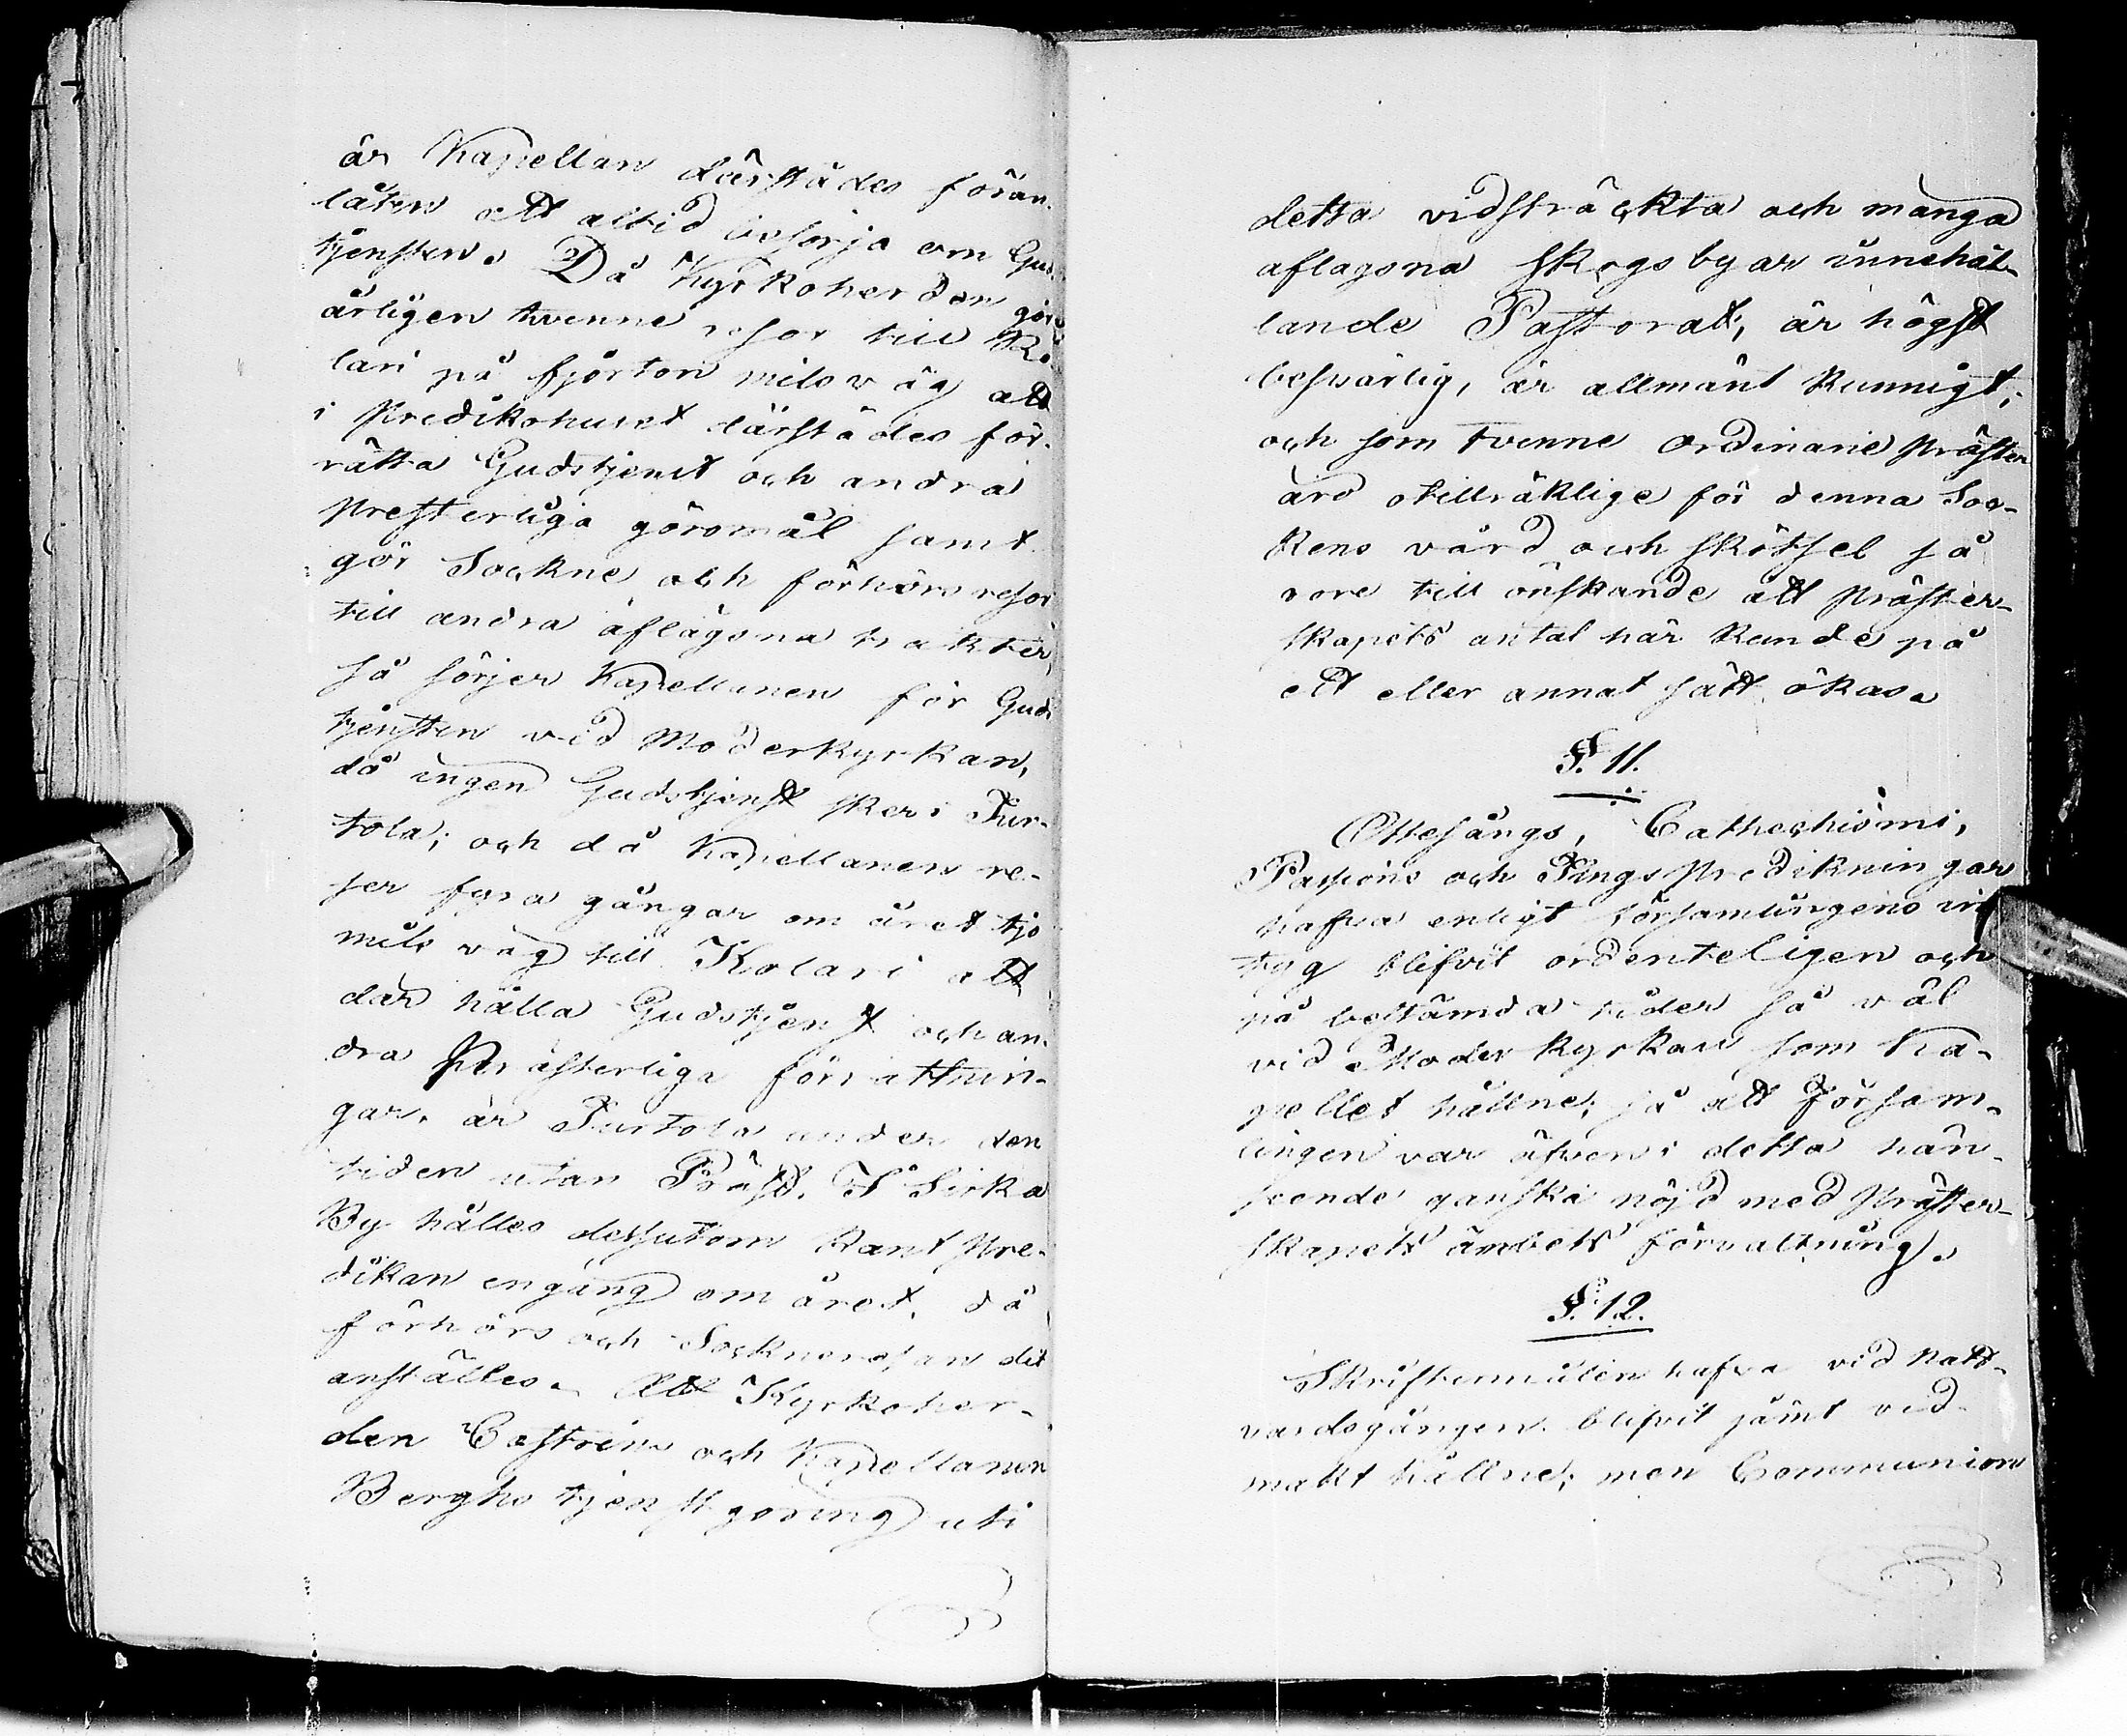 är Kapellan därstädes förän-
låten att altid besörja om Guds
tjensten. Då Kyrkoherden gör
årligen tvenne resor till Ko
lari på fjorton milsväg att
i Predikohuset därstädes för-
rätta Gudstjenst och andra
Presterliga göromål samt
gör Sockne och förhörs resor
till andra aflägsna trakter,
så sörjer Kapellanen för Guds
tjensten vid Moderkyrkan,
då ingen Gudstjenst sker i Tur-
tola; och då Kapellanen re-
ser fyra gångar om året tjo
mils väg till Kolari att
där hålla Gudstjenst och an-
dra Prästerliga förrättnin-
gar, är Turtola under den
tiden utan Präst. I Sirka
By hålles dessutom Kant Pre-
dikan engång om året, då
förhörs och Socknresan dit
anställes. Att Kyrkoher-
den Castréns och Kapellanen
Berghs tjenstgöring uti
detta vidsträckta och många
aflägsna Skogsbyar innehål-
lande Pastorat, är högst
besvärlig, är allmänt kunnigt;
och som tvenne ordinarie Präster
äro otillräklige för denna Soc-
kens vård och skötsel så
vore till önskande att Präster-
skapets antal här kunde på
ett eller annat sätt ökas.
§. 11.
Ottesångs, Cathechismi,
Passions och Tings Predikningar
hafva enligt församlingens in
tyg blifvit ordenteligen och
på bestämda tider så väl
vid Moder kyrkan som Ka-
pellet hållne; så att Försam-
lingen var äfven i detta hän-
seende ganska nöjd med Präster-
skapets ämbets förvaltning.
§. 12.
Skriftermålen hafva vid Natt-
vardsgången blifvit jämt vid
makt hållne; men Communion